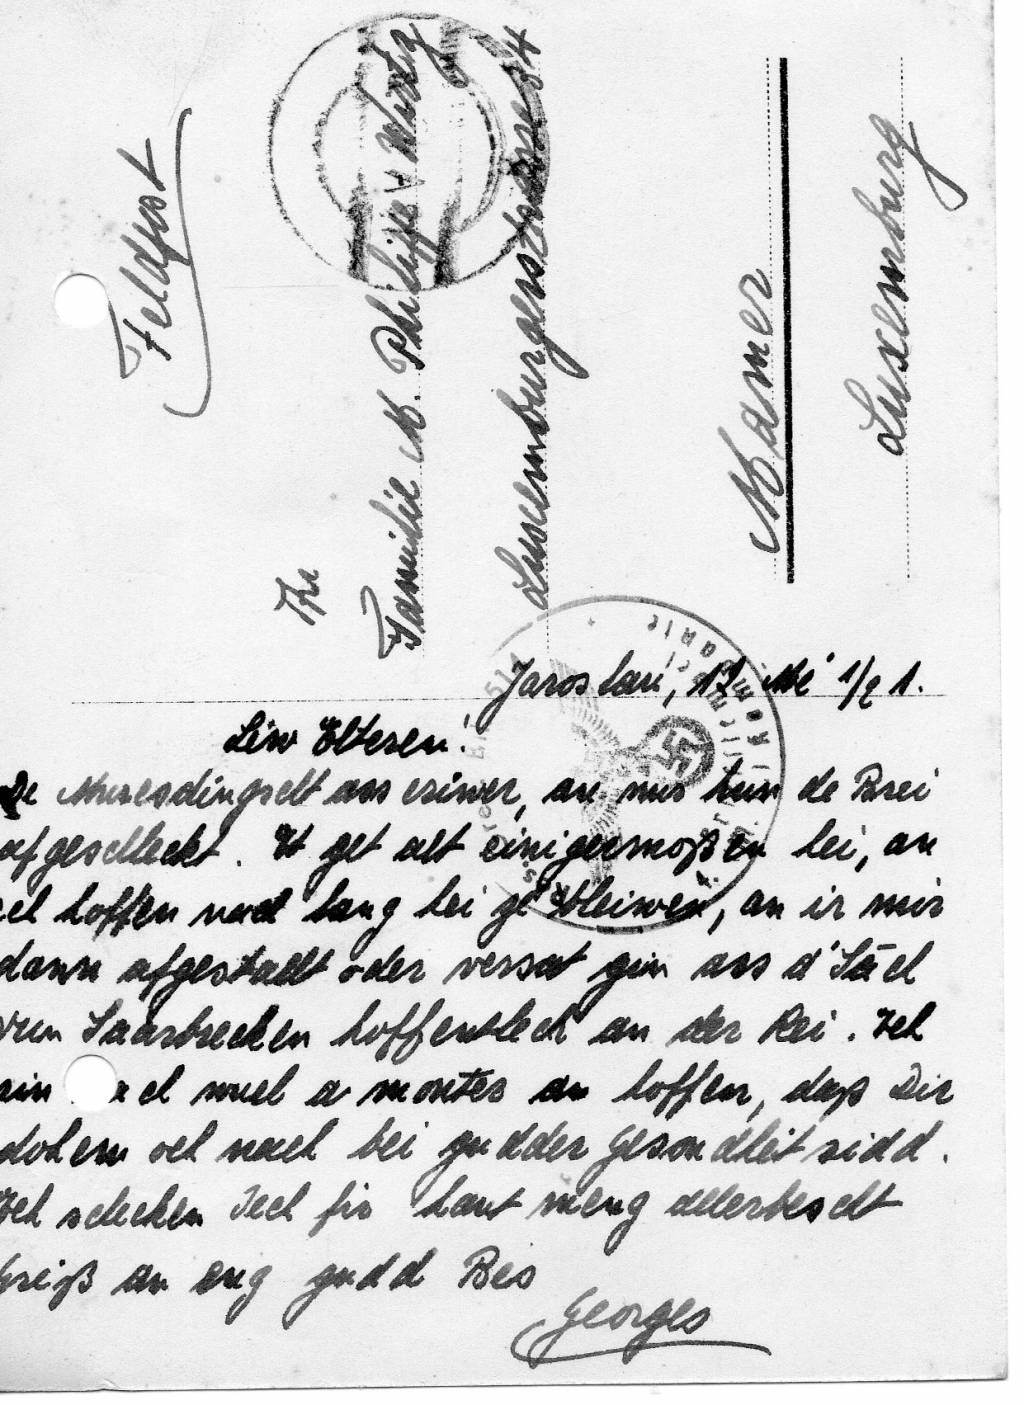 Feldpost
An
Familie M. Philippe Wirtz
Luxemburgerstrasse 84
Mamer
Luxemburg
Jaroslau, 12
Léiw Elteren!
De ass eriwer, an mir hun de Brei
afgeschleckt. Et get alt einigermoßen hei, an
ech hoffen nach lang hei ze bleiwen, an ir mir
dann afgestallt oder versat gin ass d'Säch
vun Saarbrecken hoffentlech an der Rei. Ech
sin nach wuel a monter an hoffen, daß Dir
dohem och nach bei gudder Gesondheet sidd.
Ech schecken Iech fir haut meng allerbescht
Greiß an eng gudd Bes
Georges